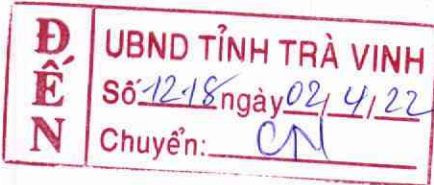 ĐẾN
UBND TỈNH TRÀ VINH
Số 1218 ngày 02/4/22
Chuyển: CN